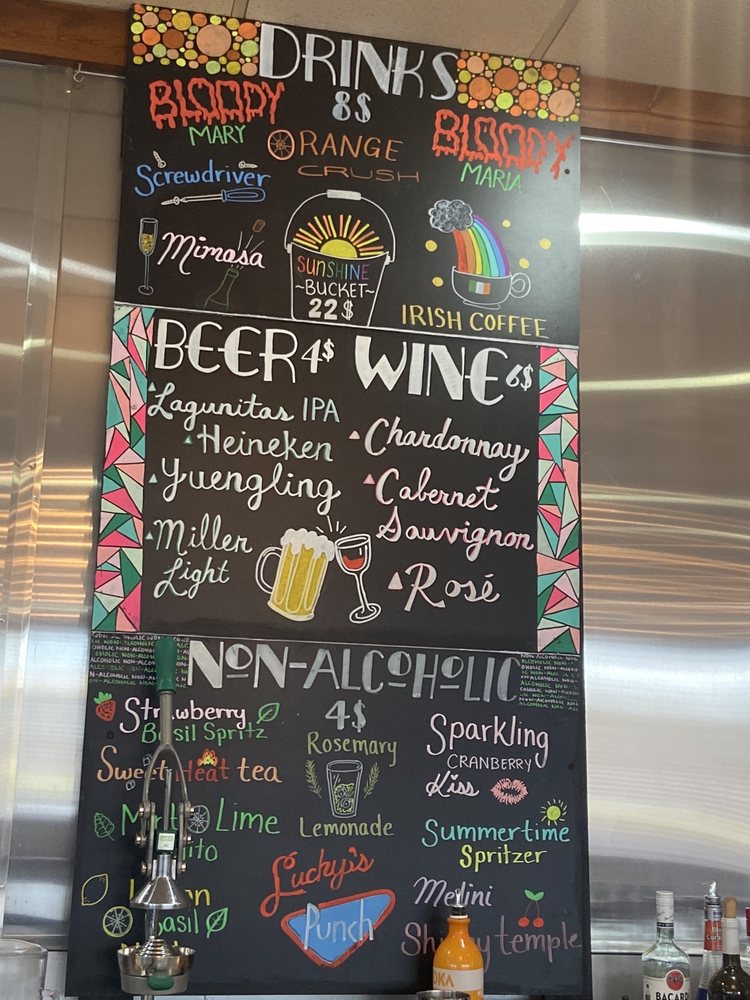 DRINKS
8$
BLOODY
MARY
ORANGE
CRUSH
BLOODY
MARIA
Screwdriver
Mimosa
SUNSHINE
~BUCKET~
22$
IRISH COFFEE
BEER 4$
Lagunitas IPA
Heineken
Yuengling
Miller
Light
WINE 6$
Chardonnay
Cabernet
Sauvignon
Rosé
NON-ALCOHOLIC
4$
Strawberry
Basil Spritz
Sweet Heat tea
Mint Lime
Basil
Rosemary
Lemonade
Lucky's
Punch
Sparkling
CRANBERRY
Kiss
Summertime
Spritzer
Shirley temple
BACARDI